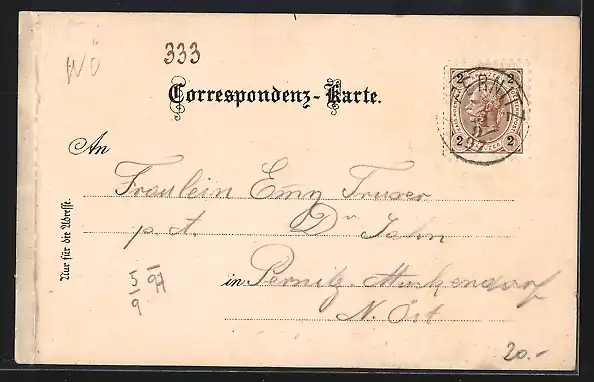 WÖ
333
2 2
2 2
PERNITZ
5
9
97
Correspondenz-Karte.
An
Fräulein Emy Truxer
p. A. Dr Jahn
in Pernitz Muckendorf
N. Öst
Nur für die Adresse.
5/9 97
20.-